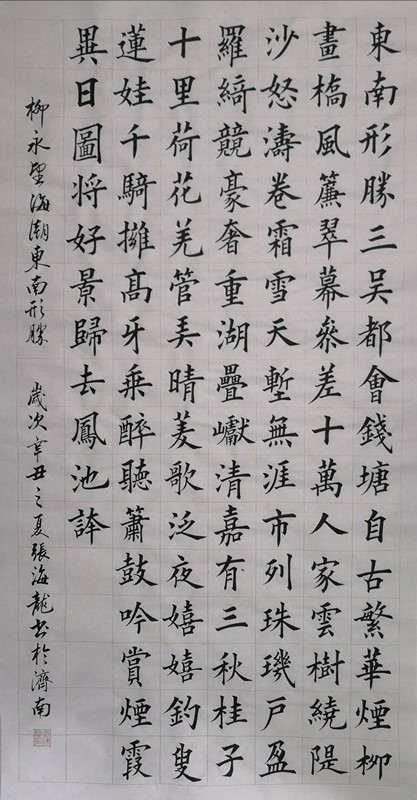 東南形勝三吳都會錢塘自古繁華煙柳
畫槗風簾翠幕叅差十萬人家雲樹繞隄
沙怒濤卷霜雪天塹無涯市列珠璣戶盈
羅綺競豪奢重湖疊巘清嘉有三秋桂子
十里荷花羌管弄晴菱歌泛夜嬉嬉釣叟
蓮娃千騎擁髙牙乘醉聽簫鼓吟賞煙霞
異日圖将好景歸去鳳池誇
柳永望海潮東南形勝 歲次辛丑之夏張海龍书於濟南